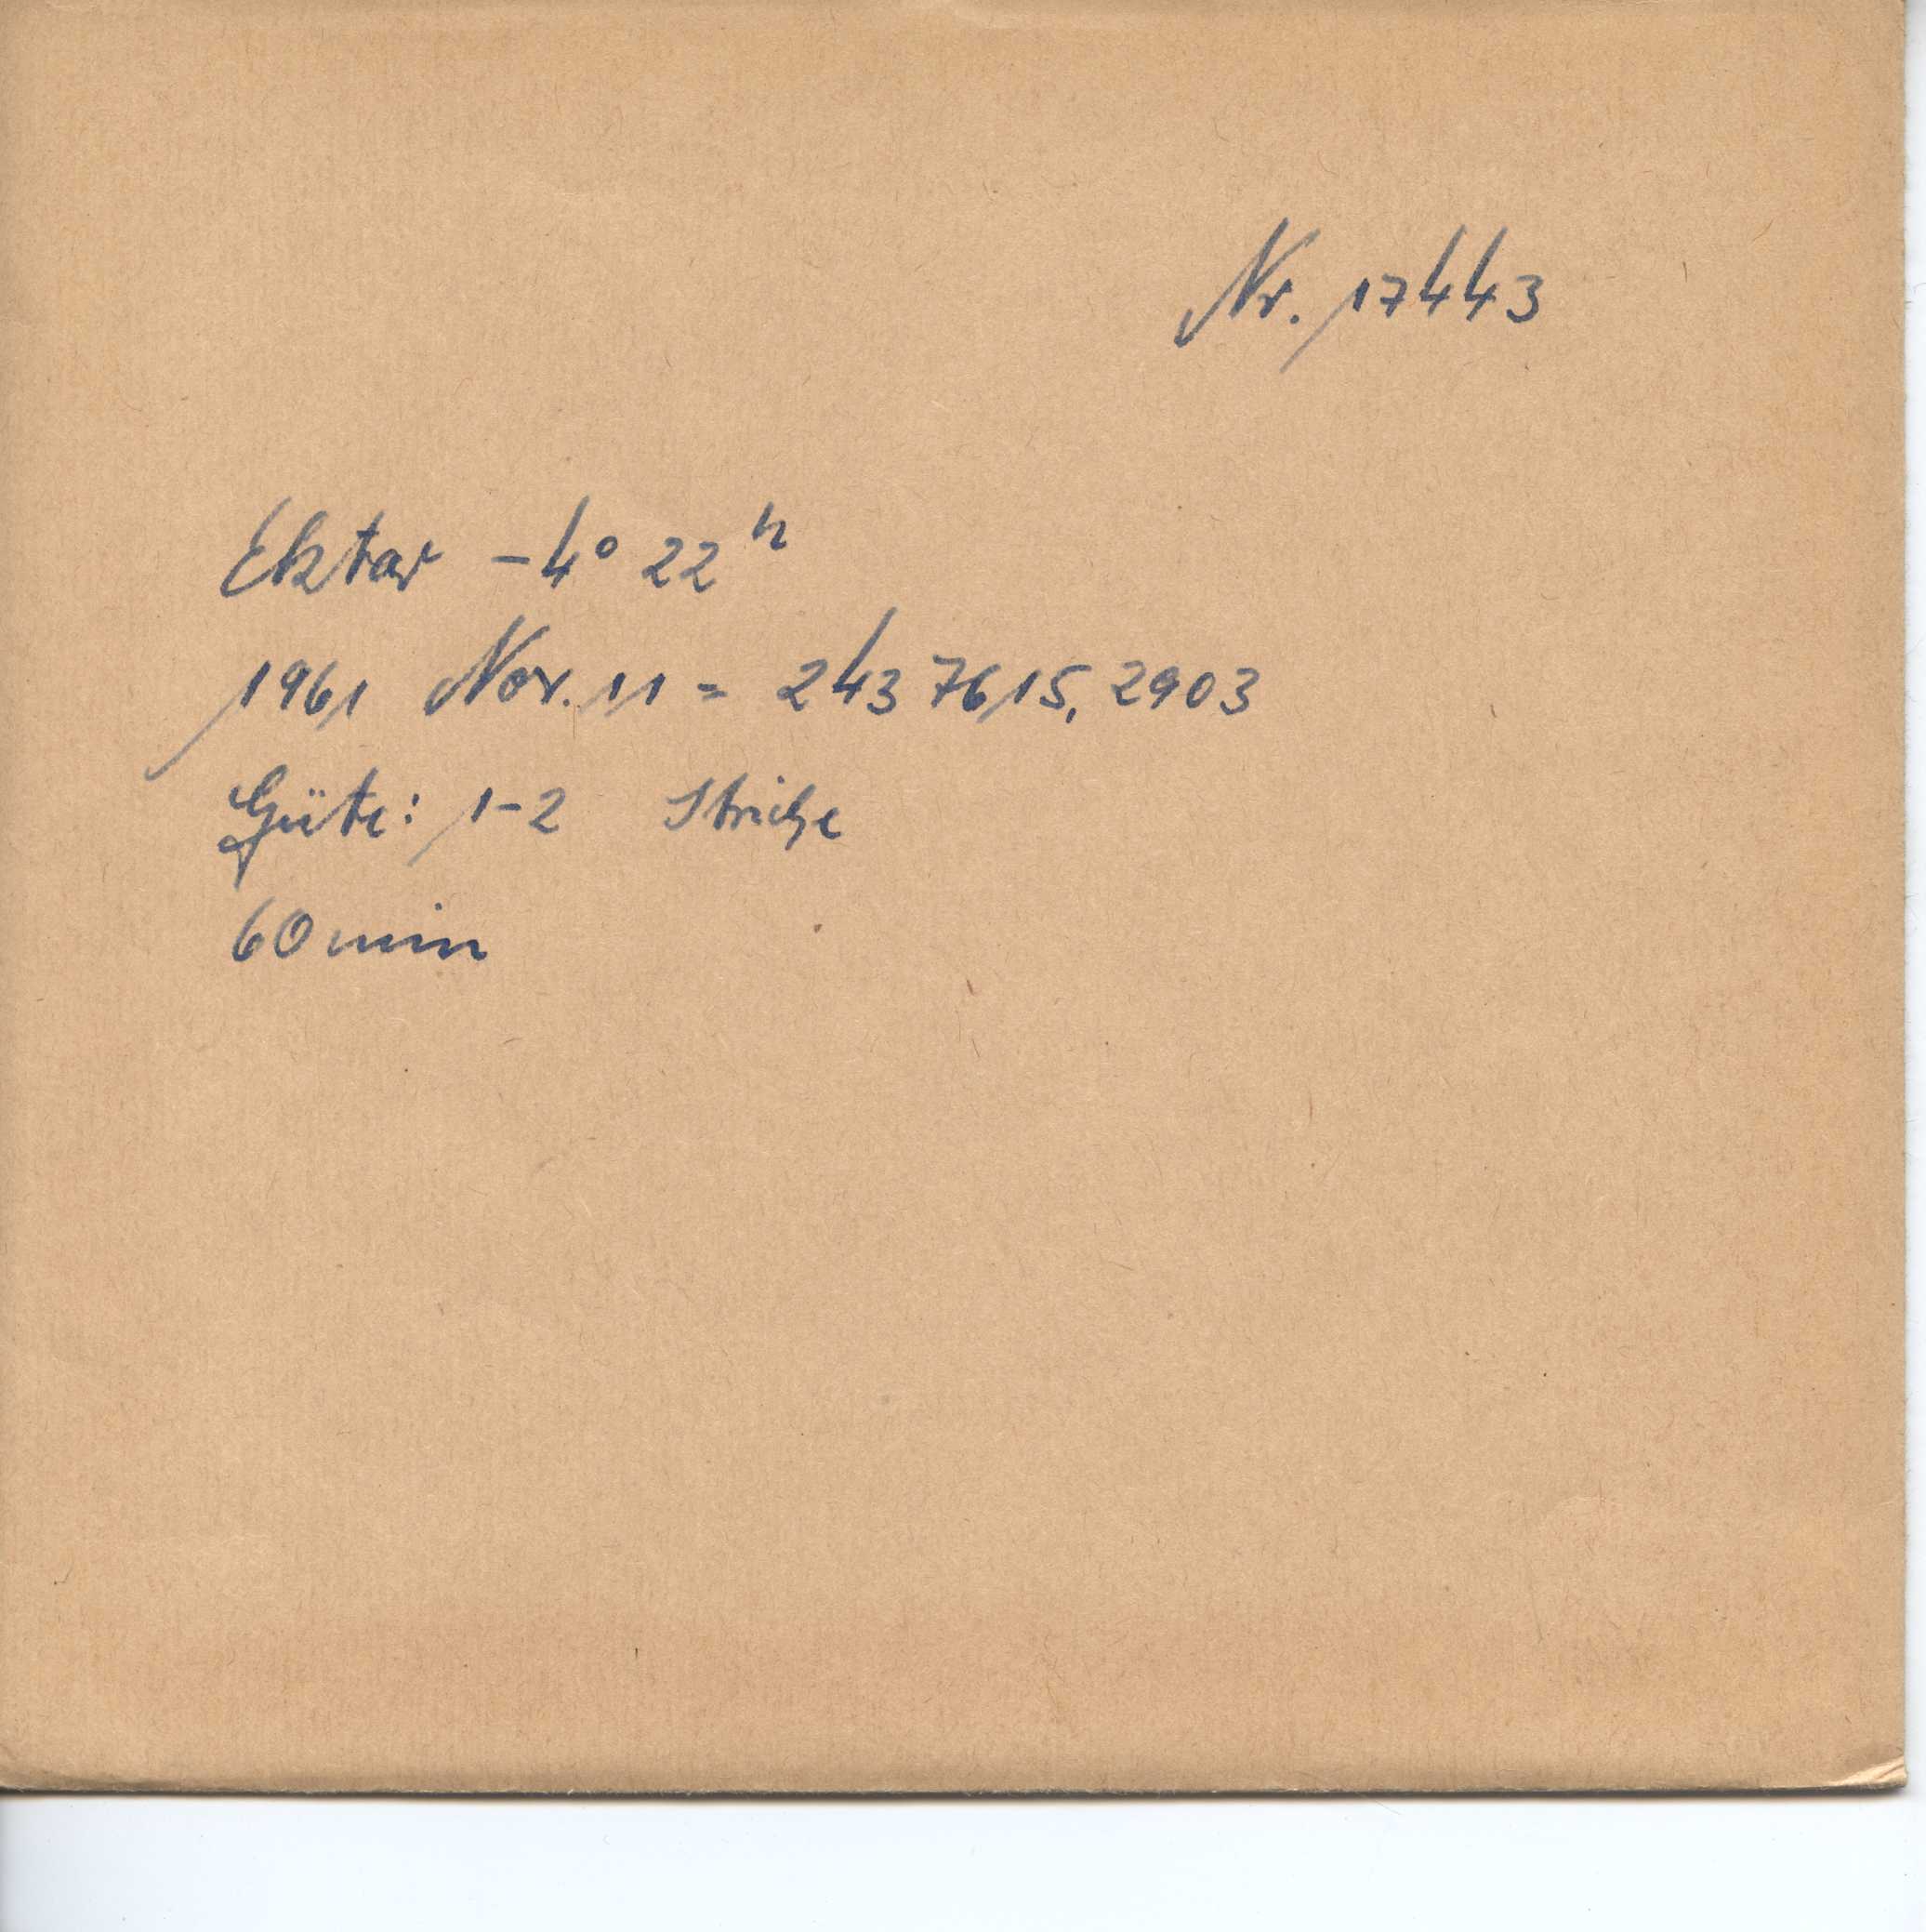 Nr. 17443
Ektar -4° 22ʰ
1961 Nov. 11 = 243 7615,2903
Güte: 1-2 Striche
60 min